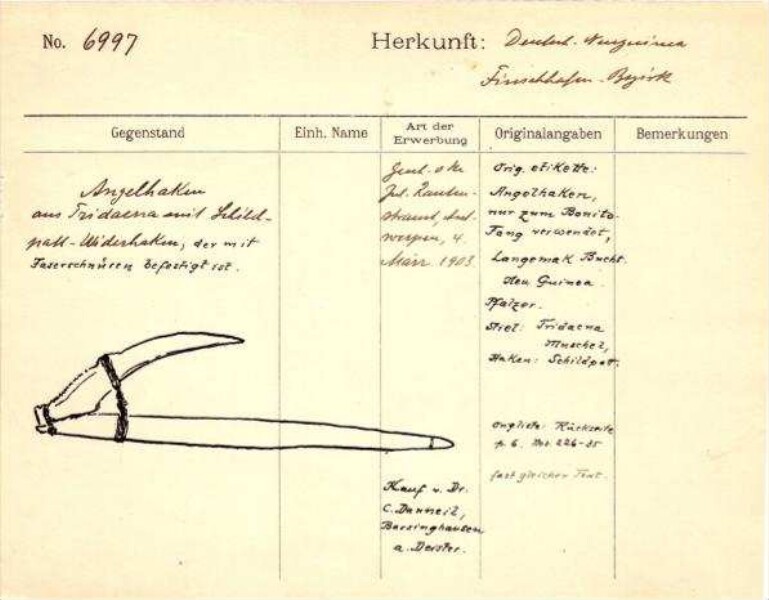 No. 6997
Herkunft: Deutsch. Neuguinea
Finschhafen-Bezirk
Gegenstand
Einh. Name
Art der
Erwerbung
Originalangaben
Bemerkungen
Angelhaken
aus Tridacna mit Schild-
patt-Widerhaken, der mit
Faserschnüren befestigt ist.
Jul. Rauten-
strauch, Ant-
werpen, 4.
März 1903.
Kauf v. Dr.
C. Danneil,
Barsinghausen
a. Deister.
Orig. etikette:
Angelhaken,
nur zum Bonito-
Fang verwendet,
Langemak Bucht.
Neu Guinea.
Pfalzer.
Stiel: Tridacna
Muschel,
Haken: Schildpatt.
Rückseite
p. 6. Nos. 226-35
fast gleicher Text.